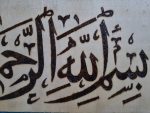 بِسْمِ اللهِ الرَّحْمَ